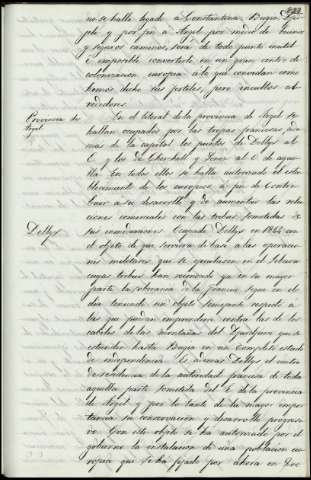 no se halla ligada á Constantina, Bugía, Gi-
gely y por fin á Argel por medio de buenos
y seguros caminos, será de todo punto inutil
é imposible convertirla en un gran centro de
colonizacion europea á lo que convidan como
hemos dicho sus fertiles, pero incultos al-
rededores.
Provincia de
Argel
En el litoral de la provincia de Argel se
hallan ocupados por las tropas francesas ade-
mas de la capital los puntos de Dellys al
E y los de Cherchell y Tenez al O de aque-
lla. En todos ellos se halla autorizado el esta-
blecimiento de los europeos á fin de contri-
buir á su desarrollo y de aumentar las rela-
ciones comerciales con las tribus sometidas de
sus inmediaciones.
Dellys
Ocupado Dellys en 1844 con
el objeto de que sirviera de base á las operacio-
nes militares que se ejecutasen en el Sebaou
cuyas tribus han reconocido ya en su mayor
parte la soberania de la Francia sigue en el
dia teniendo un objeto semejante respecto á
las que puedan emprenderse contra las de los
cabilas de las montañas del Djurdjura que se
estienden hasta Bugía en un completo estado
de independencia. Es ademas Dellys el centro
de residencia de la autoridad francesa de toda
aquella parte sometida del E de la provincia
de Argel y por lo tanto de la mayor impor-
tancia su conservacion y desarrollo progresi-
vo. Con este objeto se ha autorizado por el
gobierno la instalacion de una poblacion eu-
ropea que se ha fijado por ahora en